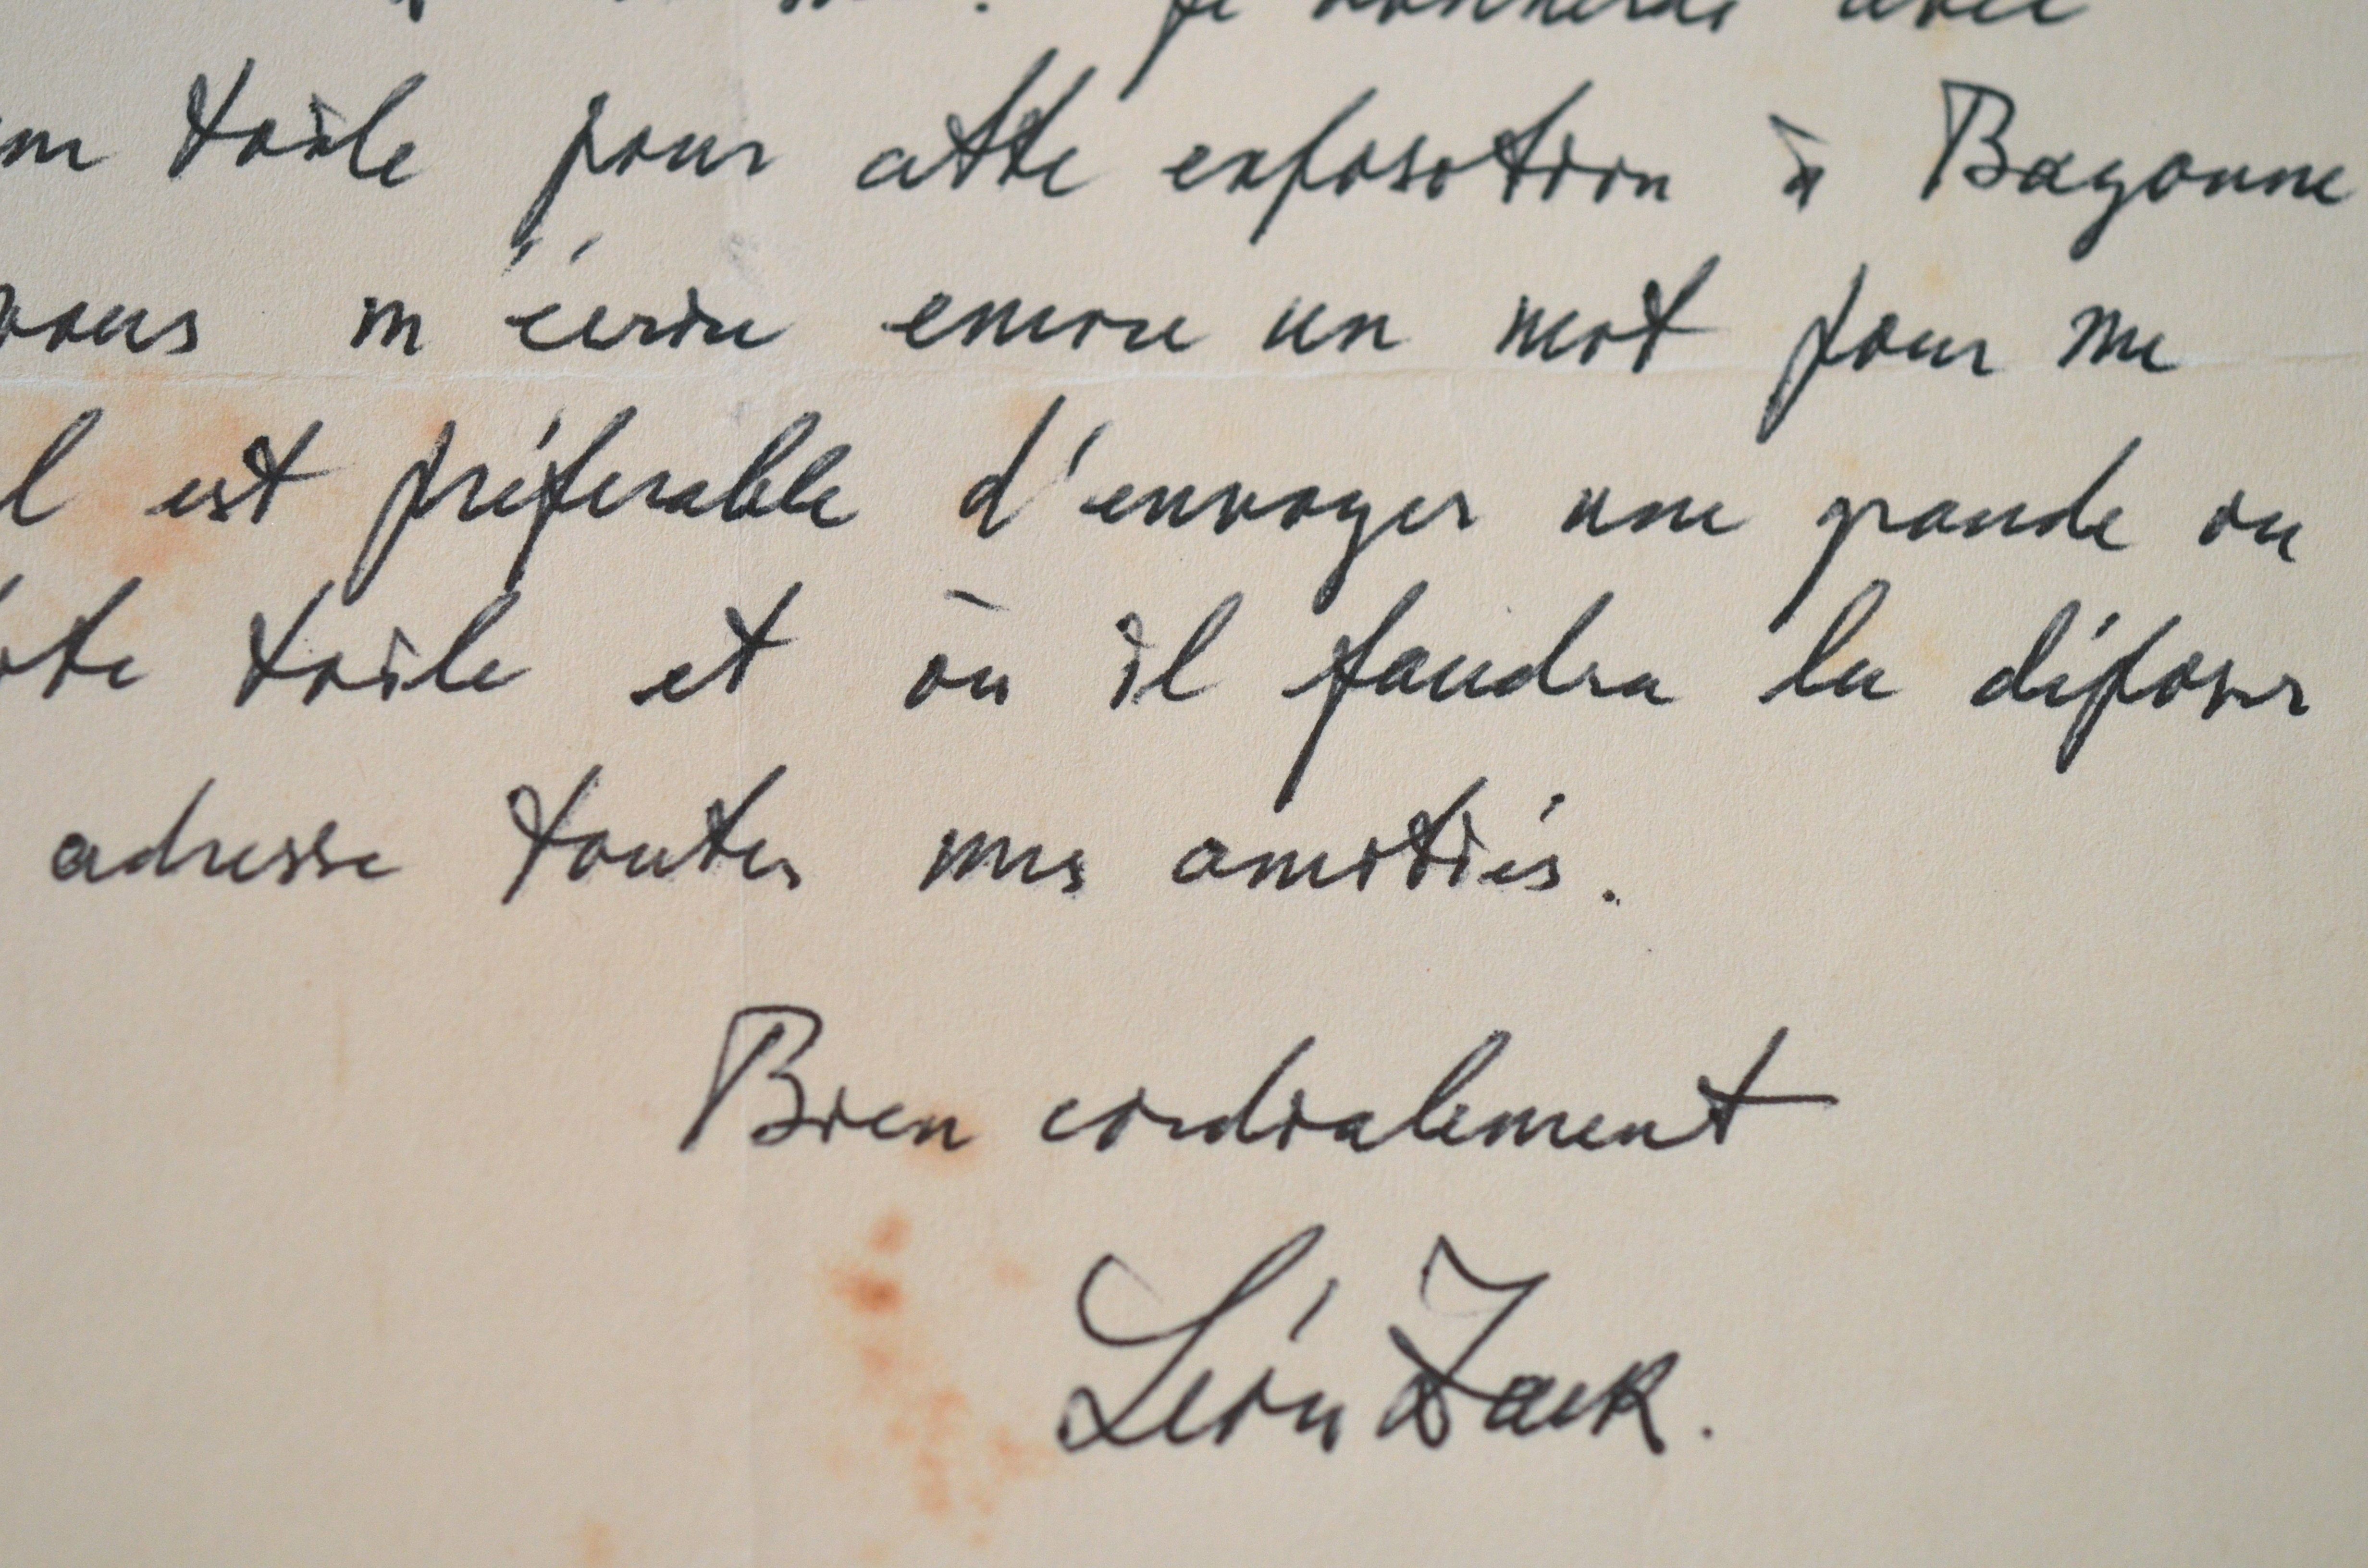 Je donnerai avec
toile pour cette exposition à Bayonne
vous m'écrire encore un mot pour me
est préférable d'envoyer une grande ou
toile et où il faudra la déposer
adresse toutes mes amitiés.
Bien cordialement
Léon Zack.